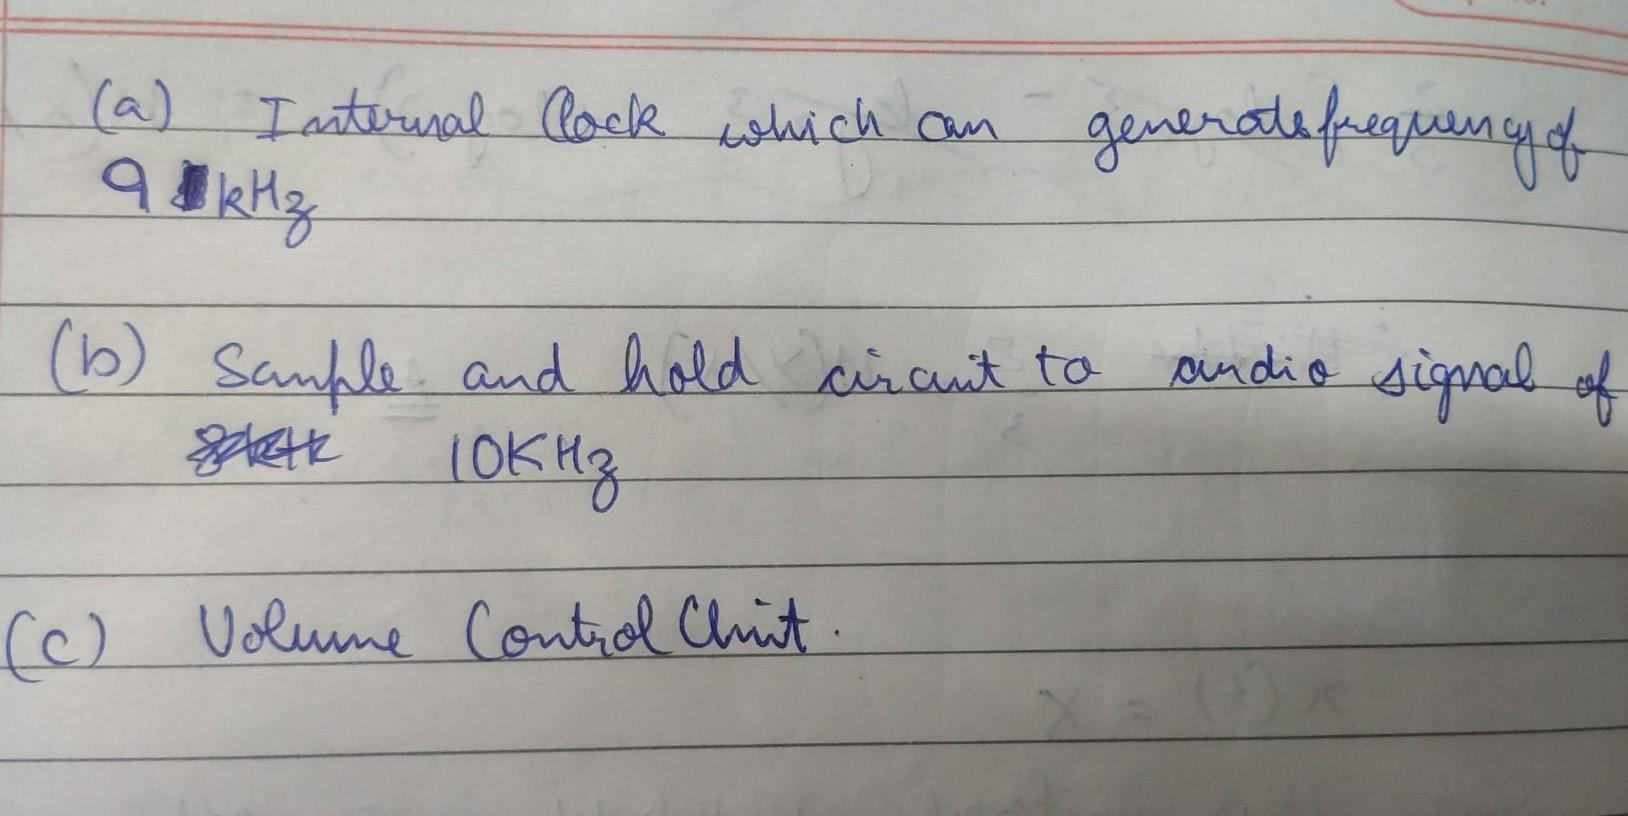 (a) Internal Clock which can generate frequency of
9 kHz
(b) Sample and hold circuit to audio signal of
10KHz
(c) Volume Control Unit.